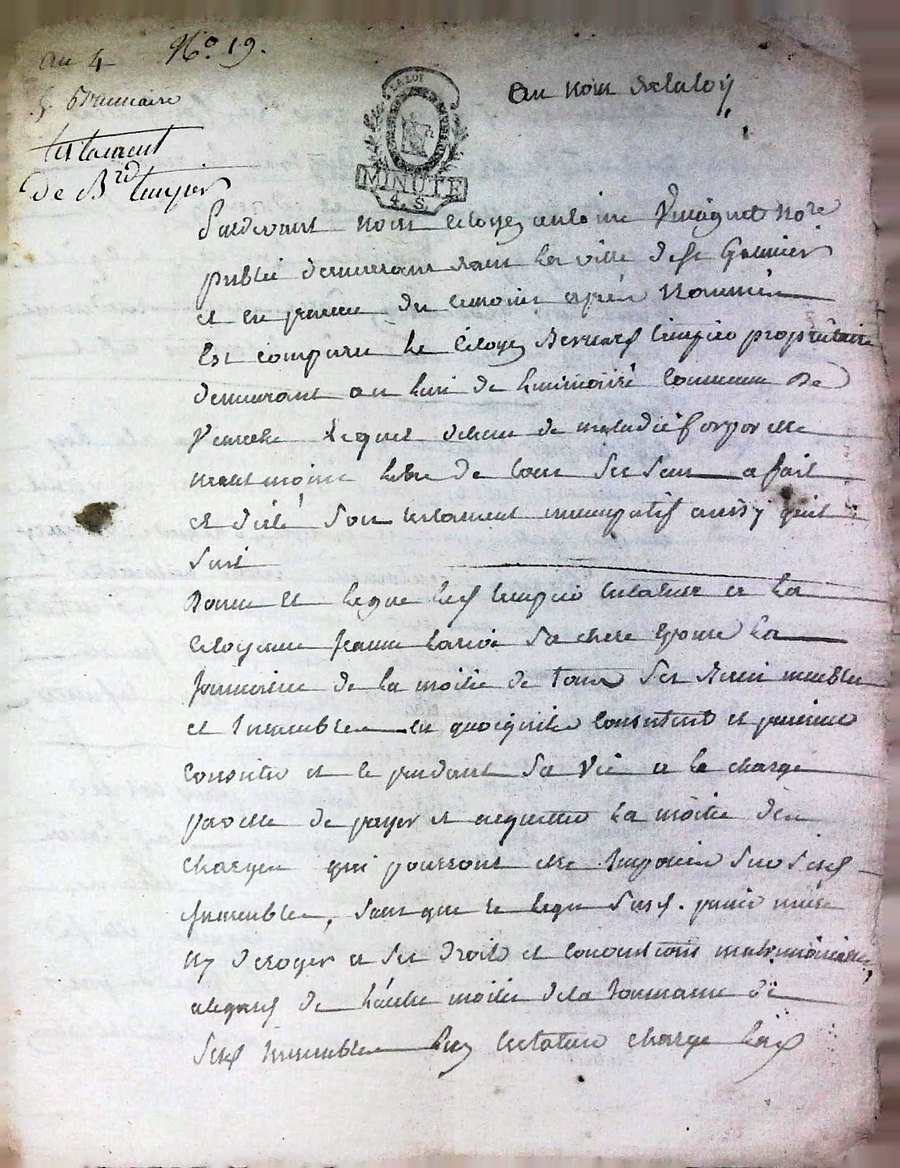 au 4 N° 19.
5 Brumaire
testament
de Brd
au nom de la loy
LA LOI
MINUTE
4. S.
Pardevant nous citoyen antoine not.re
public demeurant dans la ville de st Galmier
et en presence des temoins après nommés
Est comparu le citoyen Bernard propriétaire
demeurant au lieu de commune de
lequel detenu de maladie corporelle
neant moins libre de tous ses sens a fait
et dicté son testament nuncupatif ainsy quil
suit
Donne et legue led testateur a la
citoyenne jeanne sa chere epouse la
jouissance de la moitie de tous ses biens meubles
et immeubles en quoiquils consistent et puissent
consister et ce pendant sa vie a la charge
par elle de payer et acquitter la moitie des
charges qui pourront etre imposées sur sesd
immeubles, sans que le legue susd. puisse nuire
ny deroger a ses droits et conventions matrimoniales,
alegard de l'autre moitie de la jouissance de
sesd immeubles led testateur charge